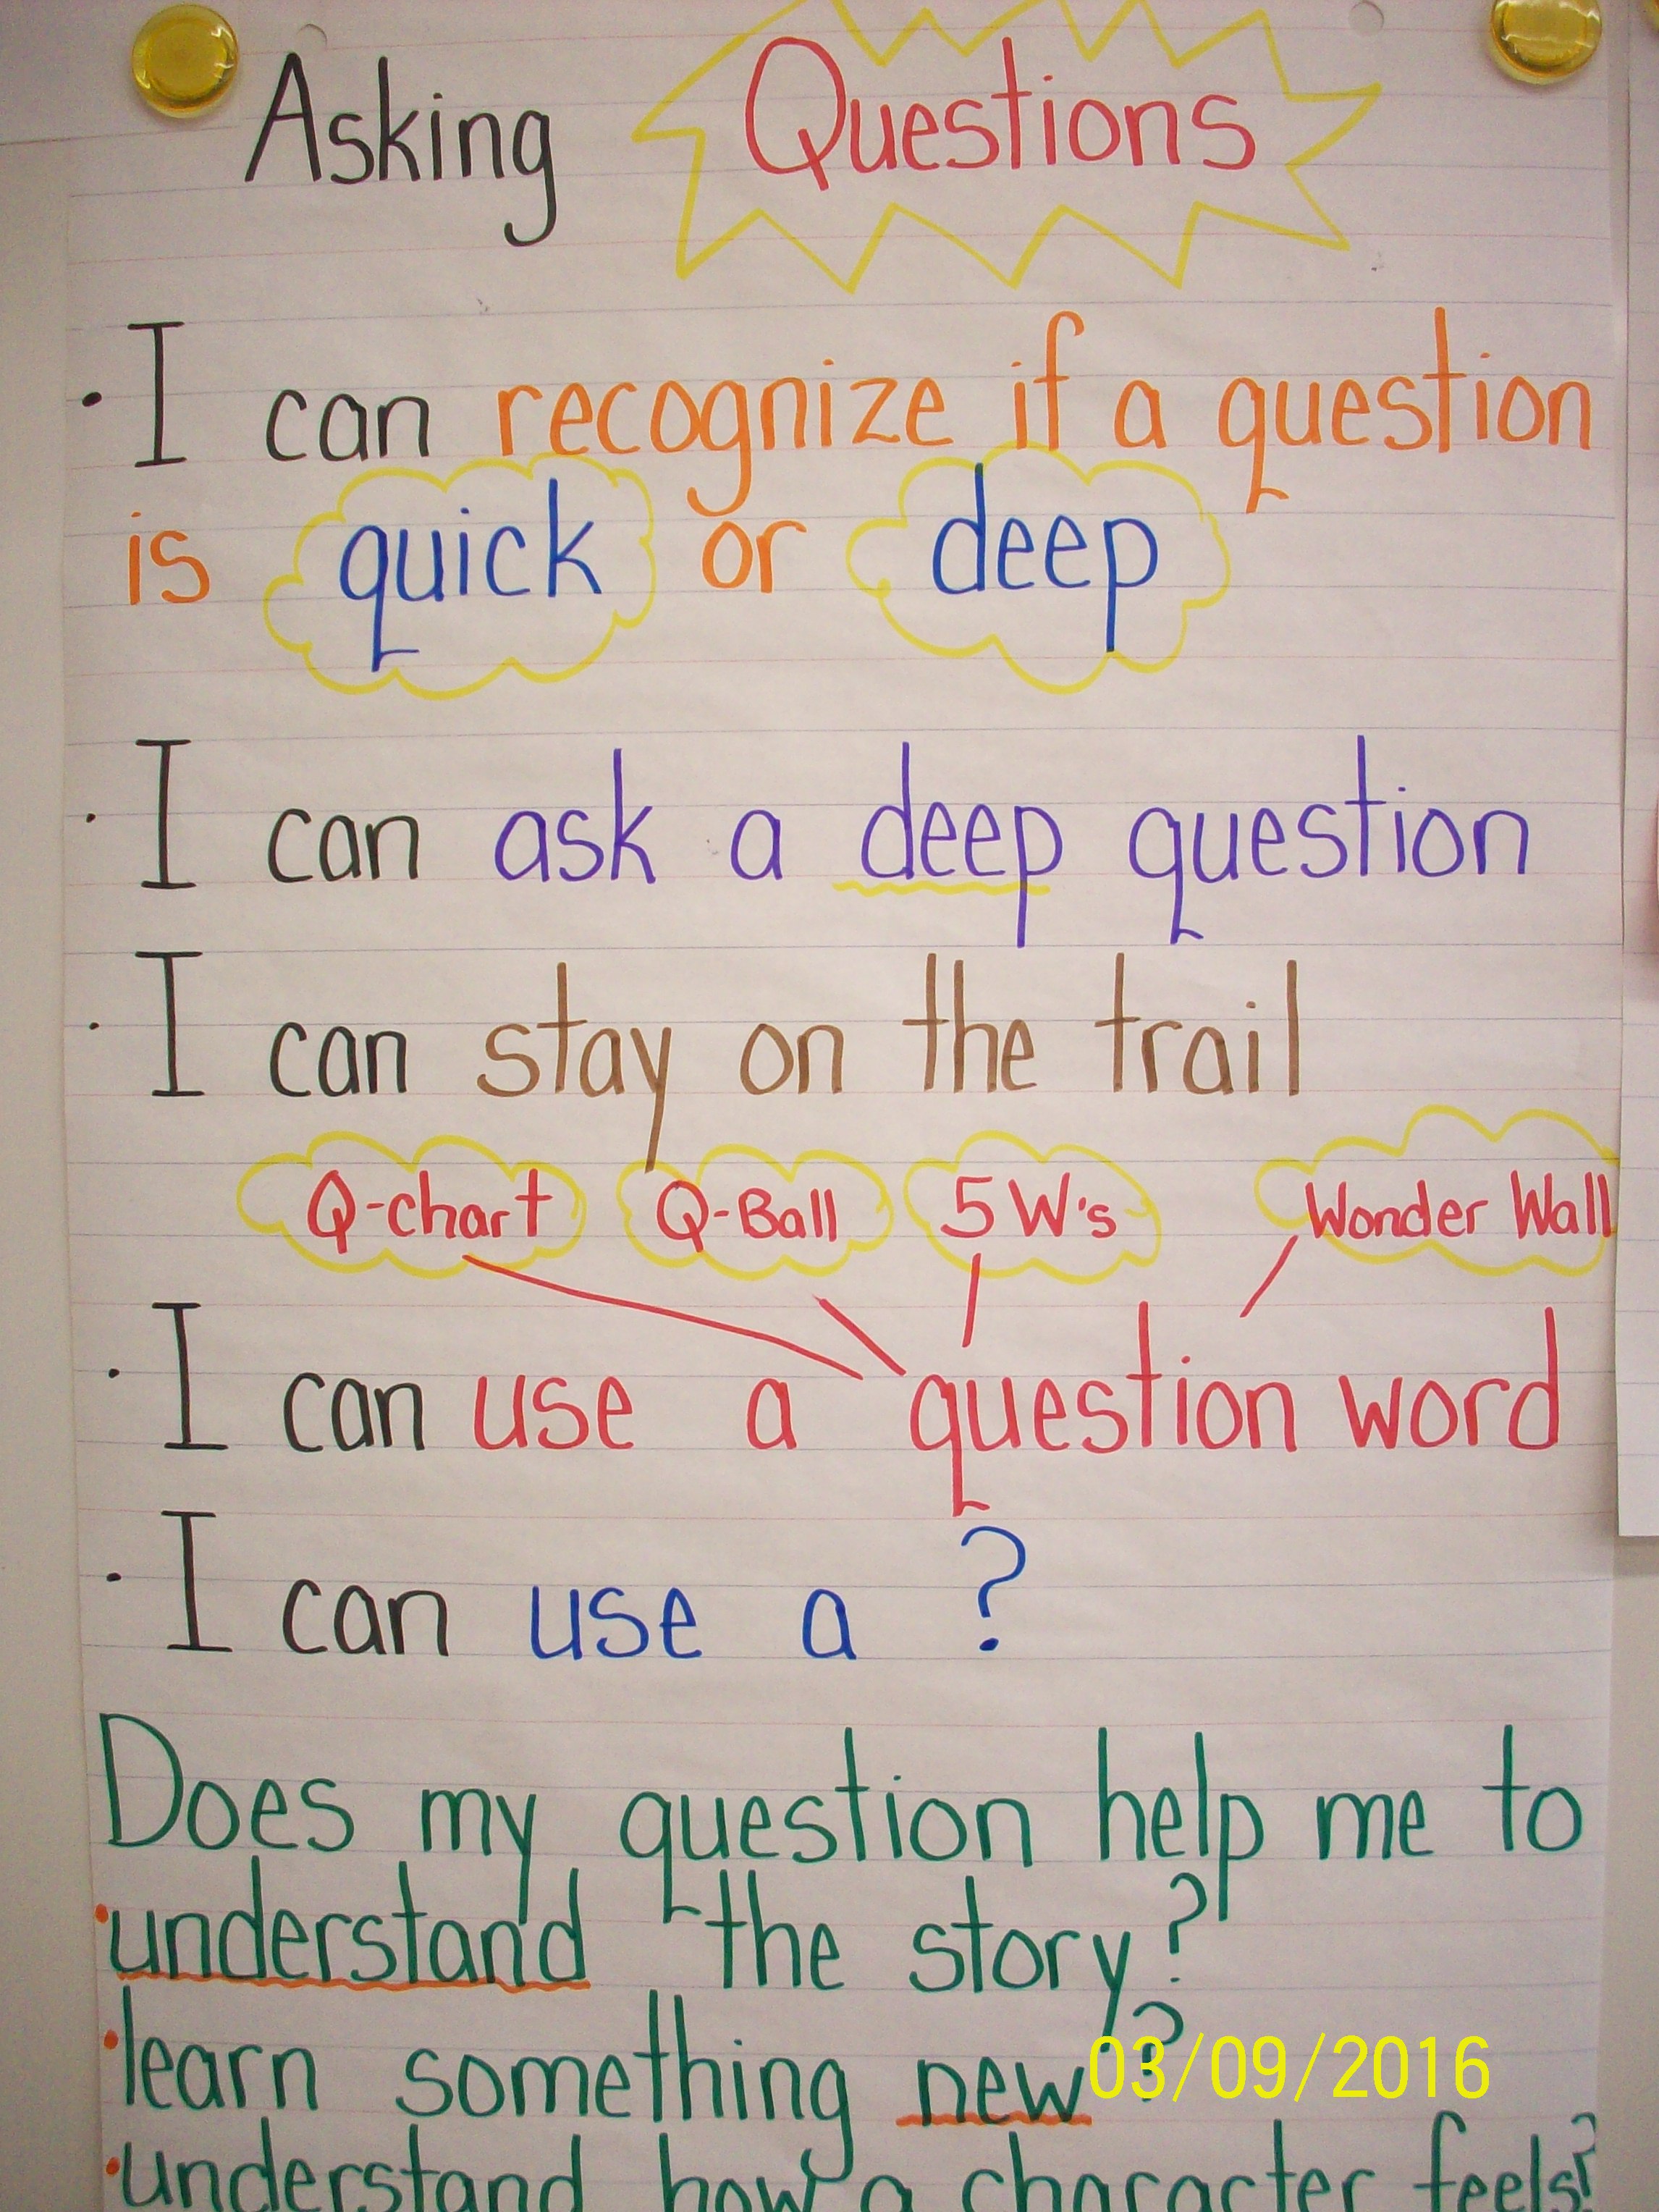 Asking Questions
· I can recognize if a question
is quick or deep
· I can ask a deep question
· I can stay on the trail
Q-chart Q-Ball 5 W's Wonder Wall
· I can use a question word
· I can use a ?
Does my question help me to
· understand the story?
· learn something new?
03/09/2016
· understand how a character feels?